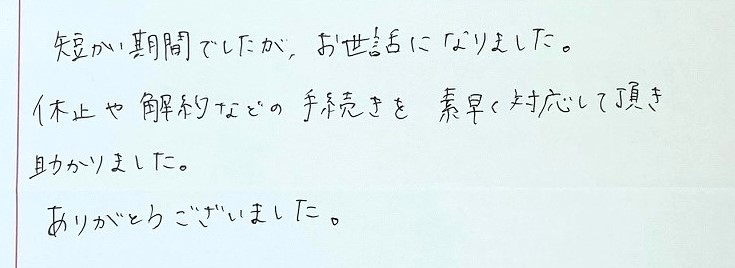 短かい期間でしたが、お世話になりました。
休止や解約などの手続きを素早く対応して頂き
助かりました。
ありがとうございました。